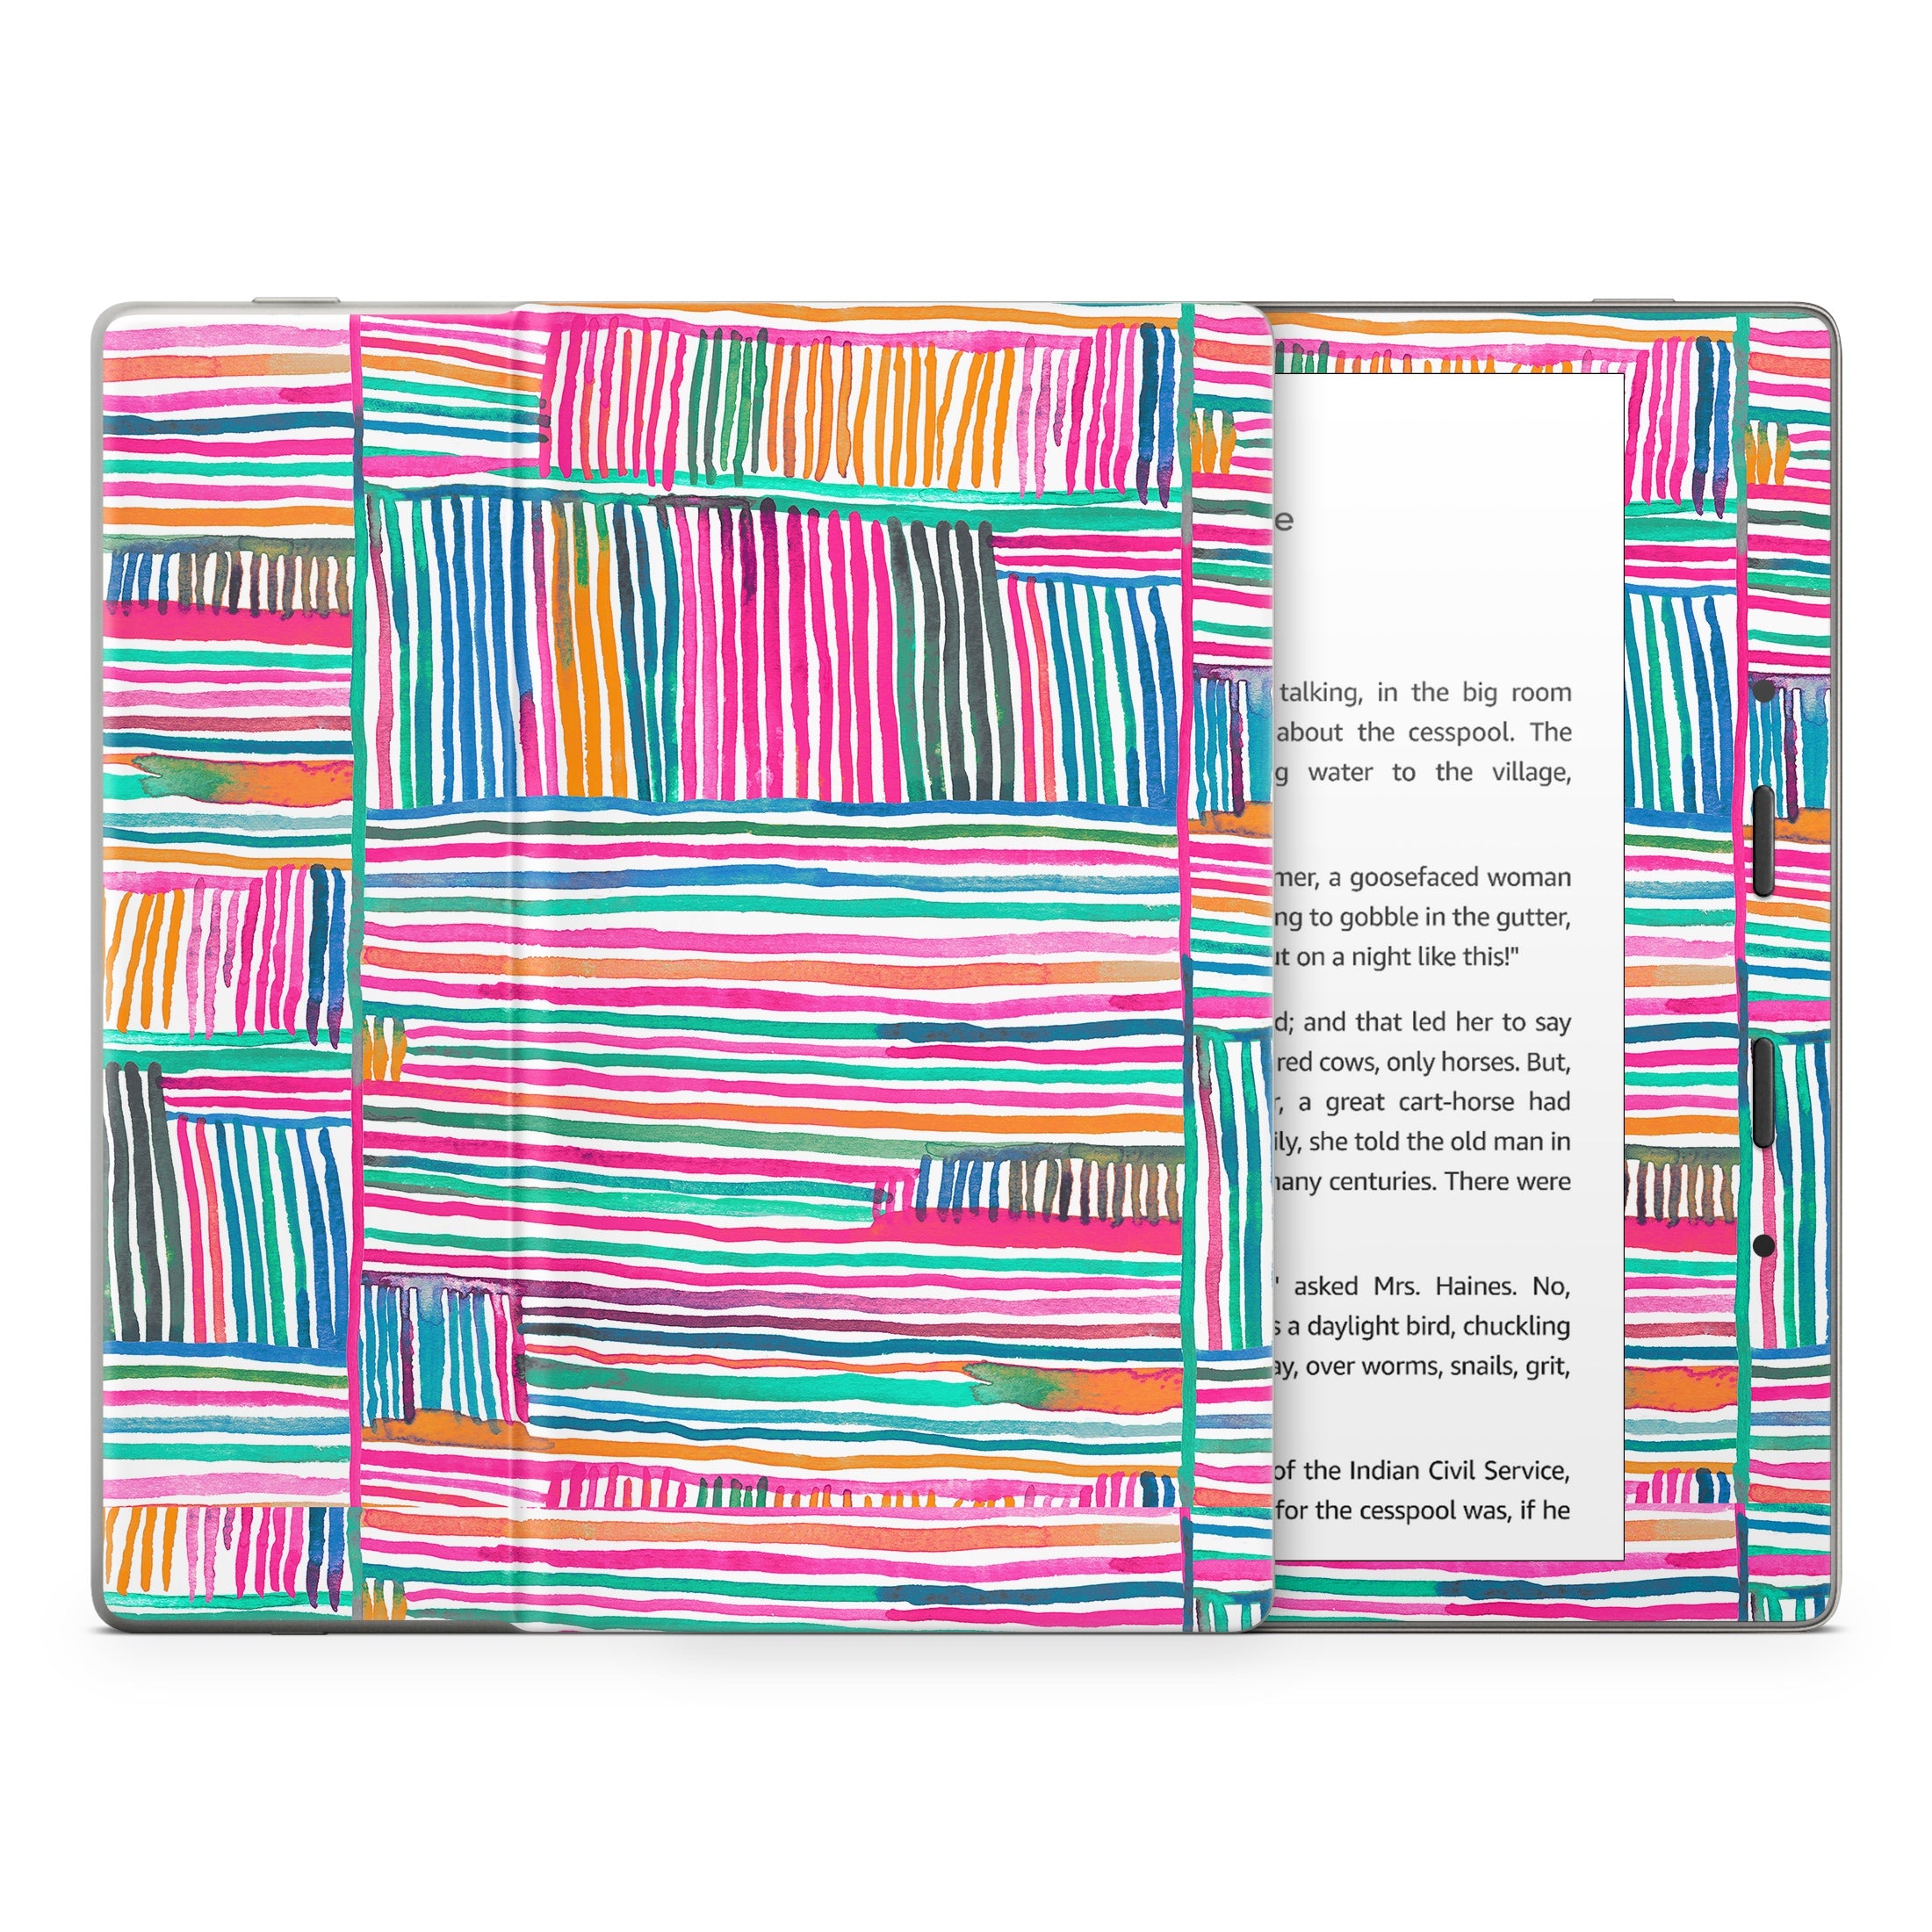 talking, in the big room
about the cesspool. The
water to the village,
a goosefaced woman
to gobble in the gutter,
on a night like this!"
and that led her to say
red cows, only horses. But,
a great cart-horse had
she told the old man in
centuries. There were
asked Mrs. Haines. No,
a daylight bird, chuckling
over worms, snails, grit,
of the Indian Civil Service,
for the cesspool was, if he